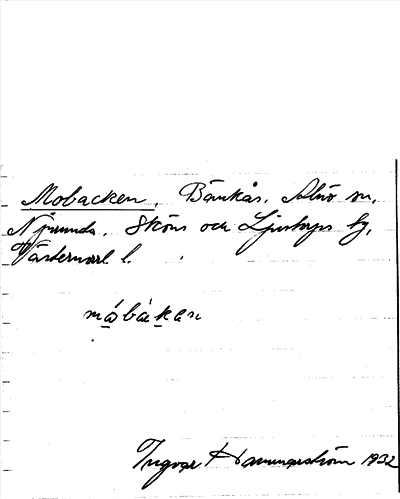 Mobacken, Bänkås, Alnö sn,
Njurunda, Sköns och Ljustorps tg,
Västernorrl l.
måbakan
Ingvar Hammarström 1932